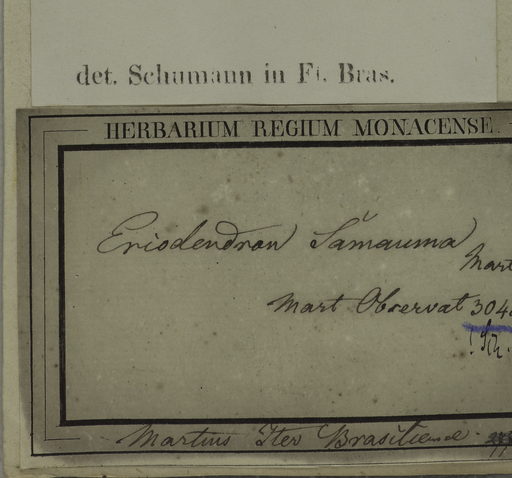 det. Schumann in Fl. Bras.
HERBARIUM REGIUM MONACENSE.
Eriodendron Samauma
Mart
Mart Observat 304
! Sch.
Martius Iter Brasiliense.